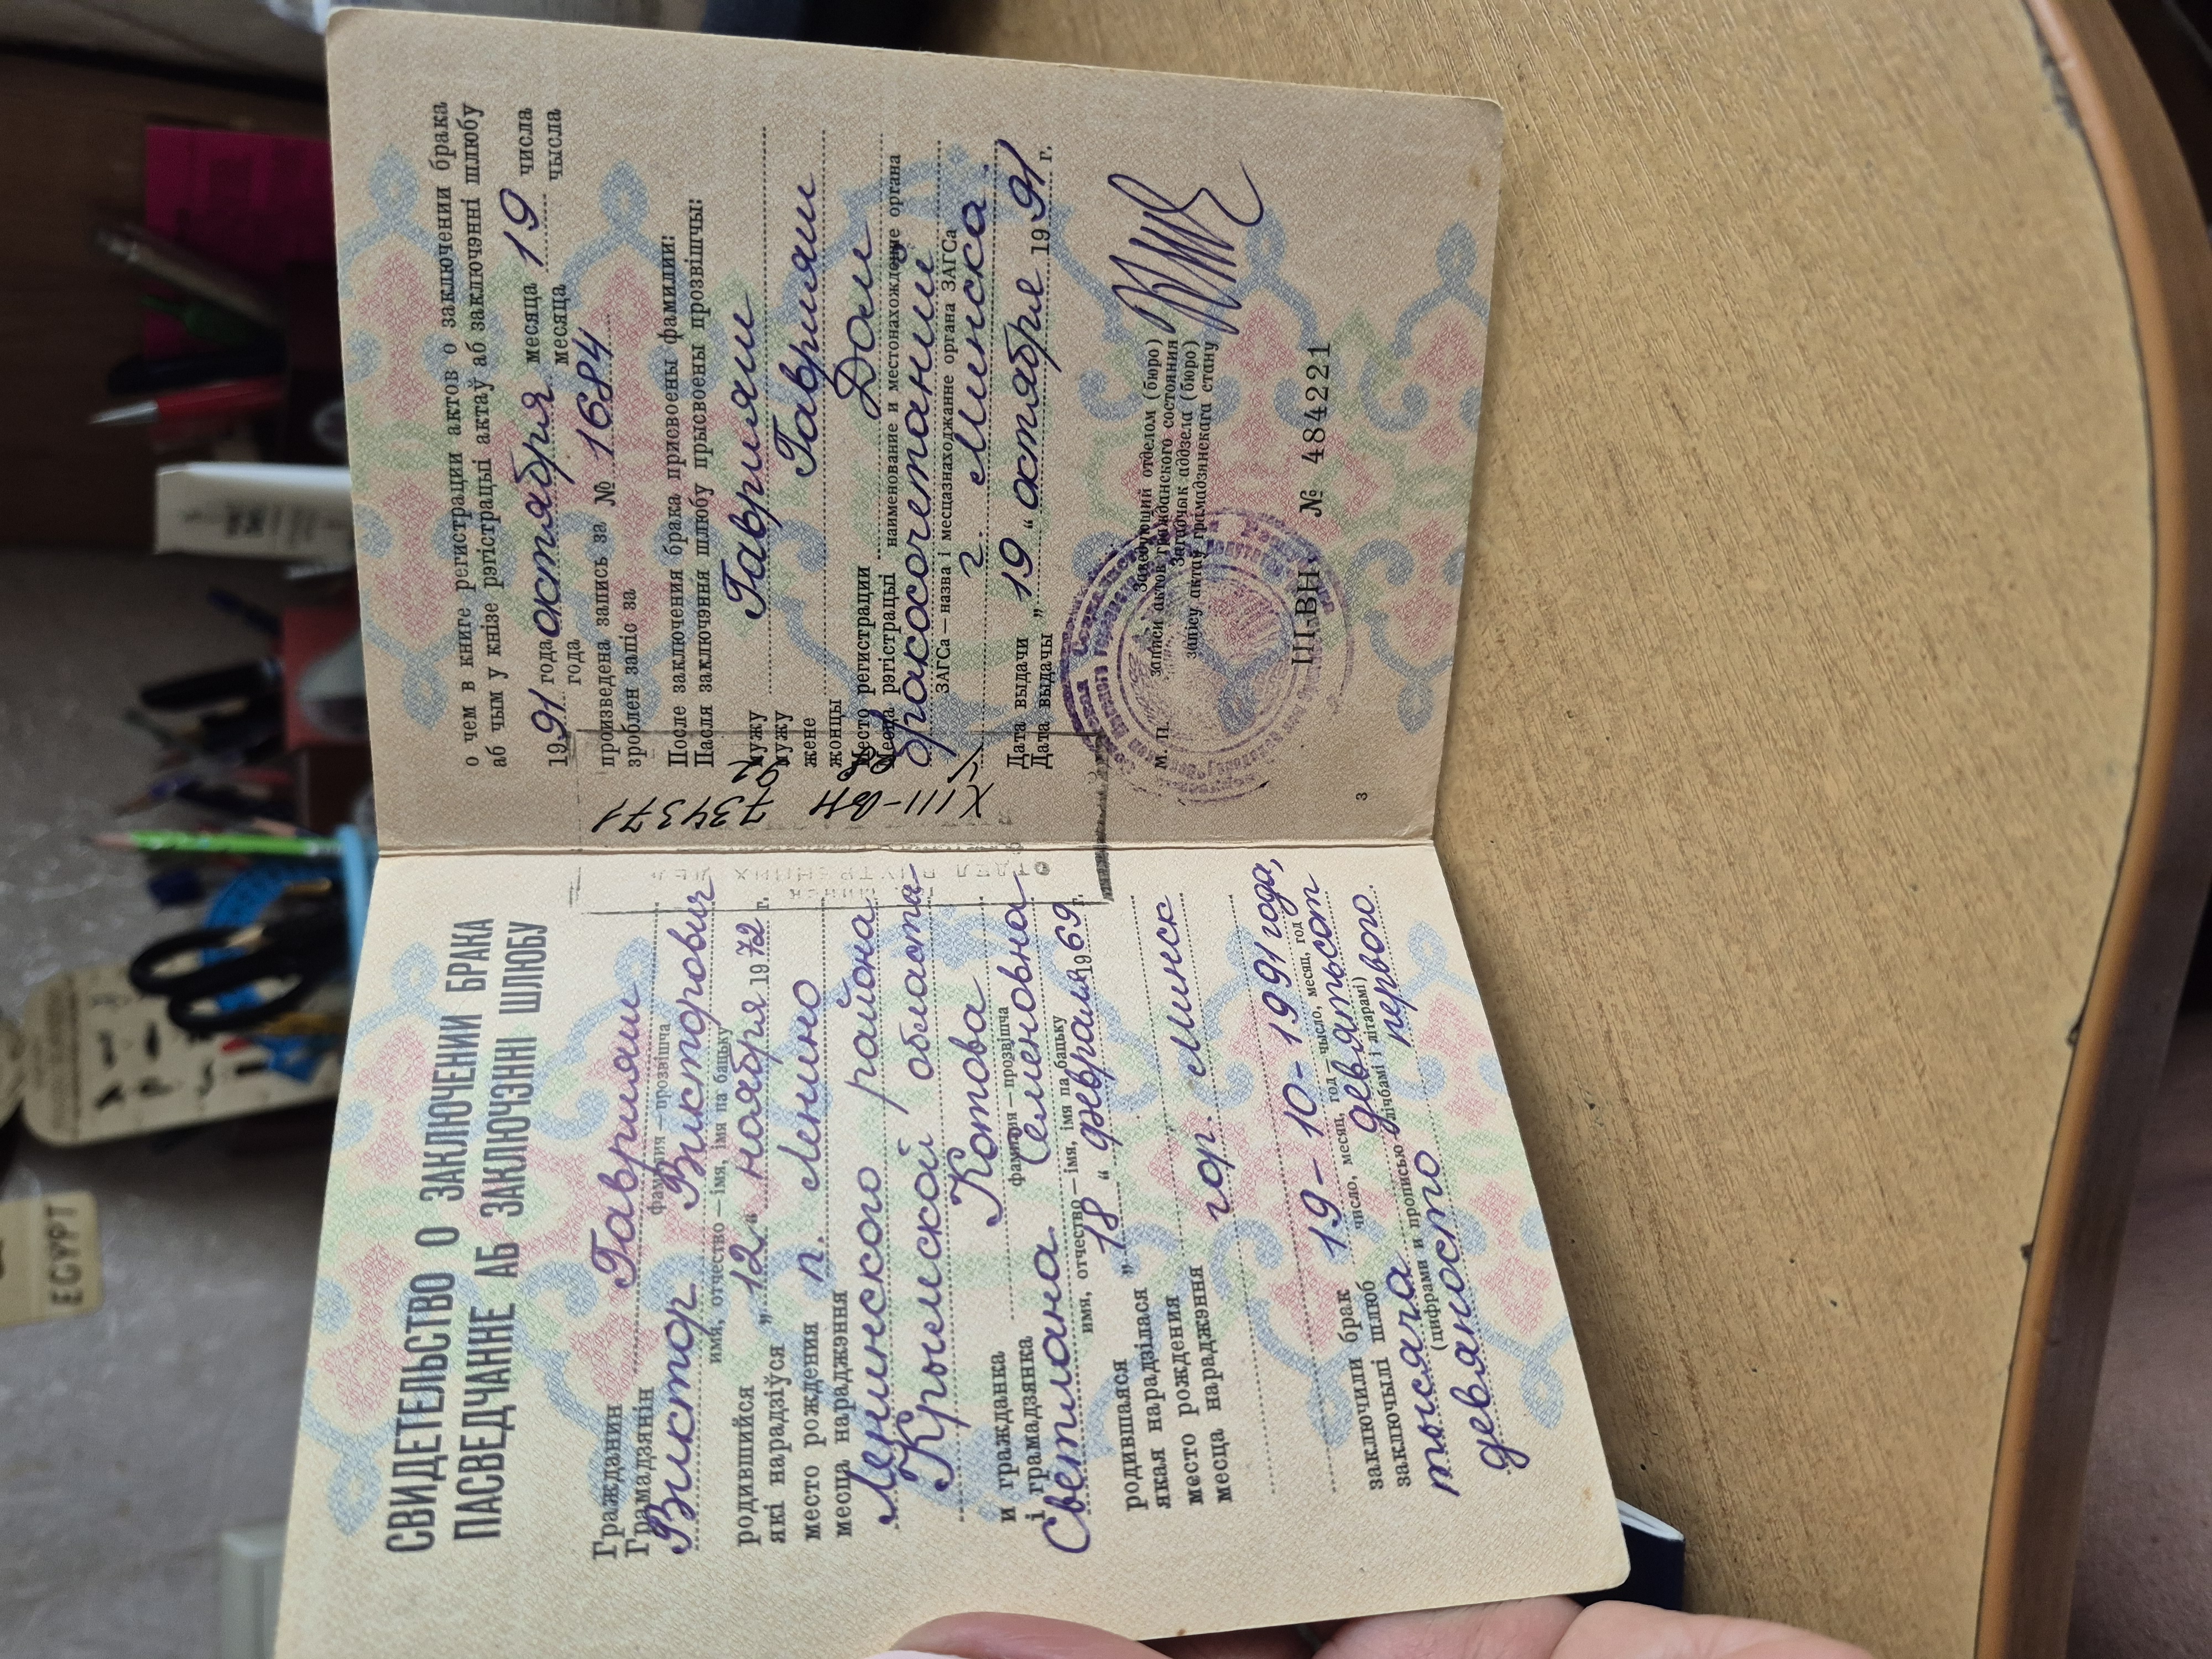 СВИДЕТЕЛЬСТВО О ЗАКЛЮЧЕНИИ БРАКА
ПАСВЕДЧАННЕ АБ ЗАКЛЮЧЭННІ ШЛЮБУ
Гражданин
Грамадзянін Гаврияш
фамилия — прозвішча
Виктор Викторович
имя, отчество — імя, імя па бацьку
родившийся
які нарадзіўся „12“ ноября 1972 г.
место рождения
месца нараджэння п. Ленино
Ленинского района
Крымской области
и гражданка
і грамадзянка Котова
фамилия — прозвішча
Светлана Семеновна
имя, отчество — імя, імя па бацьку
родившаяся
якая нарадзілася „18“ февраля 1969 г.
место рождения
месца нараджэння гор. Минск
заключили брак
заключылі шлюб 19-10-1991 года,
число, месяц, год — чысло, месяц, год
тысяча девятьсот
(цифрами и прописью — лічбамі і літарамі)
девяносто первого
о чем в книге регистрации актов о заключении брака
аб чым у кнізе рэгістрацыі актаў аб заключэнні шлюбу
1991 года октября месяца 19 числа
года месяца чысла
произведена запись за № 1684
зроблен запіс за
После заключения брака присвоены фамилии:
Пасля заключэння шлюбу прысвоены прозвішчы:
мужу
мужу Гаврияш
жене
жонцы Гаврияш
Место регистрации
Месца рэгістрацыі Дом
наименование и местонахождение органа
бракосочетаний
ЗАГСа — назва і месцазнаходжанне органа ЗАГСа
г. Минска
Дата выдачи
Дата выдачы „19“ октября 1991 г.
М. П.
Заведующий отделом (бюро)
записи актов гражданского состояния
Загадчык аддзела (бюро)
запісу актаў грамадзянскага стану
III-ВН № 484221
3
XIII-ВН
734371
ОТДЕЛ ВНУТРЕННИХ ДЕЛ
EGYPT